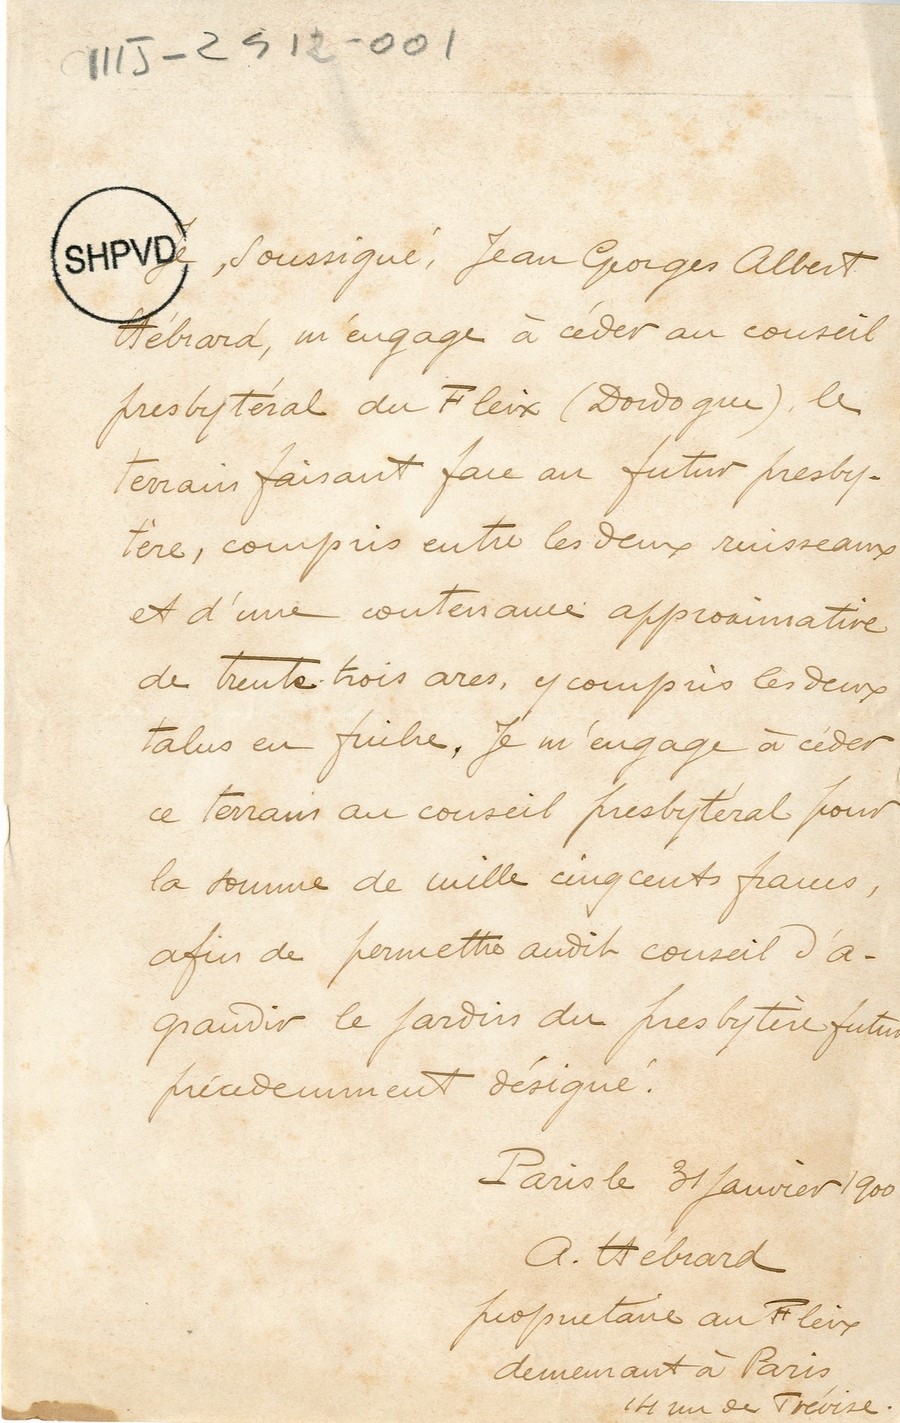 IIIJ-2912-001
SHPVD
Je, soussigné, Jean Georges Albert
Hébrard, m'engage à céder au conseil
presbytéral du Fleix (Dordogne), le
terrain faisant face au futur presby-
tère, compris entre les deux ruisseaux
et d'une contenance approximative
de trente-trois ares, y compris les deux
talus en friche. Je m'engage à céder
ce terrain au conseil presbytéral pour
la somme de mille cinq cents francs,
afin de permettre audit conseil d'a-
grandir le jardin du presbytère futur
précedemment désigné.
Paris le 31 janvier 1900
A. Hébrard
propriétaire au Fleix
demeurant à Paris
14 rue de Trévise.